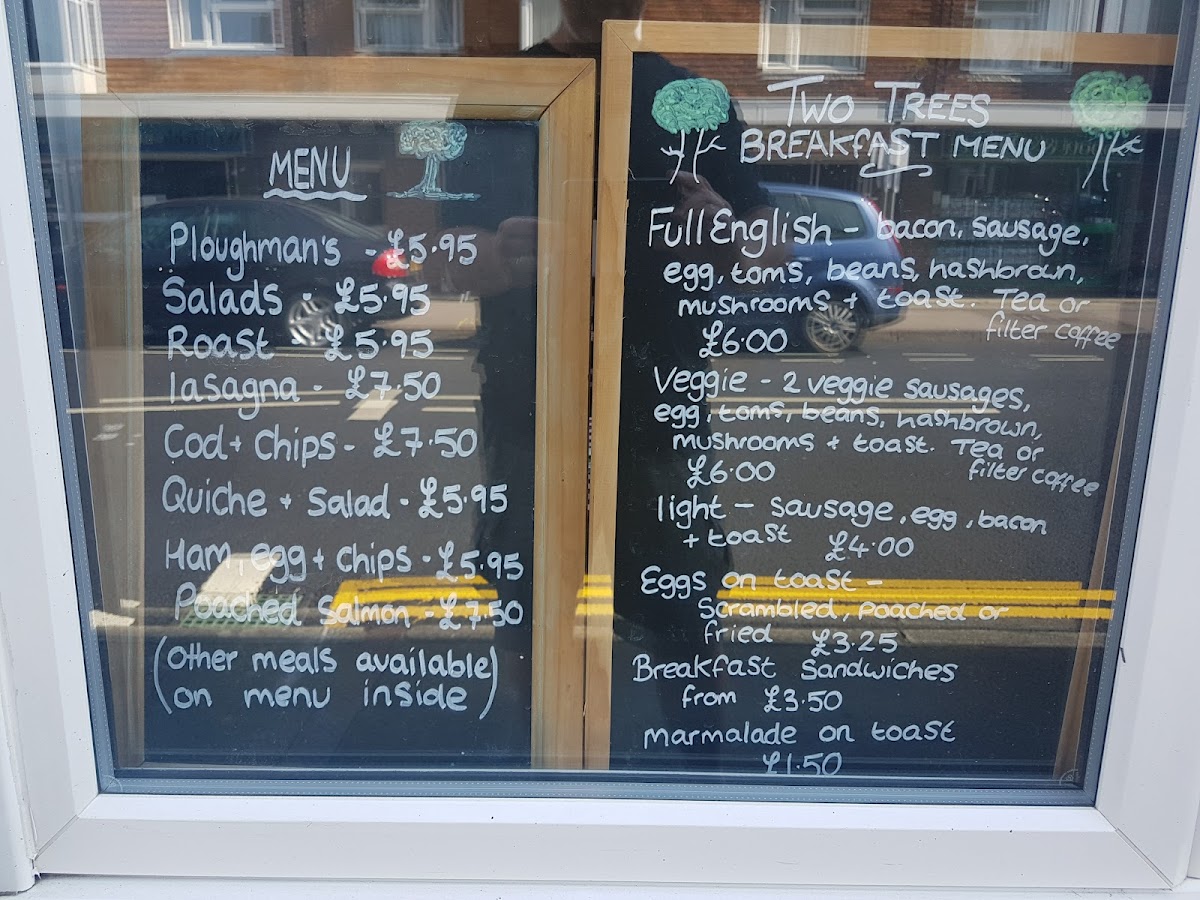 MENU
Ploughman's - £5.95
Salads - £5.95
Roast £5.95
lasagna - £7.50
Cod + Chips - £7.50
Quiche + Salad - £5.95
Ham, egg + chips - £5.95
Poached Salmon - £7.50
(Other meals available)
(on menu inside)
TWO TREES
BREAKFAST MENU
Full English - bacon, sausage,
egg, toms, beans, hashbrown,
mushrooms + toast. Tea or
filter coffee
£6.00
Veggie - 2 veggie sausages,
egg, toms, beans, hashbrown,
mushrooms + toast. Tea or
filter coffee
£6.00
light - sausage, egg, bacon
+ toast £4.00
Eggs on toast -
Scrambled, poached or
fried £3.25
Breakfast Sandwiches
from £3.50
marmalade on toast
£1.50